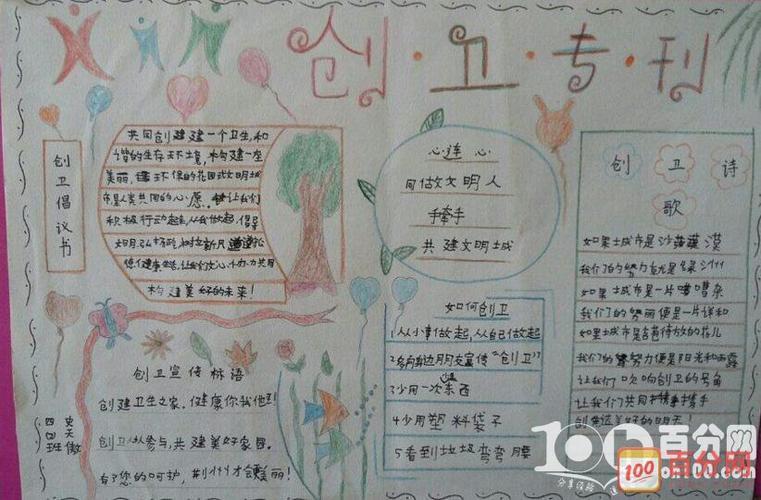 创·卫·专·刊
创卫倡议书
共同创建建一个卫生,和
谐的生存环境,构建一座
美丽,环保的花园式文明城
市是人类共同的心愿.让我们
积极行动起来,从我做起,倡导
构建美好的未来!
心连心
同做文明人
手牵手
共建文明城
如何创卫
1从小事做起,从自己做起
2多向身边朋友宣传“创卫”
3少用一次东西
4少用塑料袋子
5看到垃圾弯弯腰
创卫诗
歌
如果城市是沙漠
我们的努力就是绿洲
如果城市是一片嘈杂
我们的努力便是一片详和
如果城市是含苞待放的花儿
我们的努力便是阳光和雨露
让我们吹响创卫的号角
让我们共同携手
创造美好的明天
创卫宣传标语
创建卫生之家.健康你我他
创卫人人参与,共建美好家园.
有了您的呵护,才会美丽!
四四班
史天傲
100百分网
100 百分网